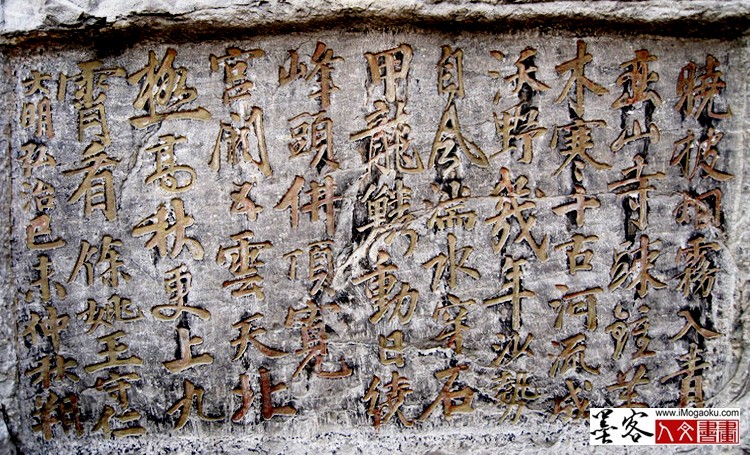 曉披烟霧入青
巒山寺疎鐘萬
木寒千古河流成
沃野幾年沙勢
自風湍水穿石
甲龍鱗動日繞
峰頭佛頂寬
宮闕五雲天北
極高秋更上九
霄看 餘姚王守仁
大明弘治己未仲秋朔
墨客
www.iMogaoku.com
人文書畫